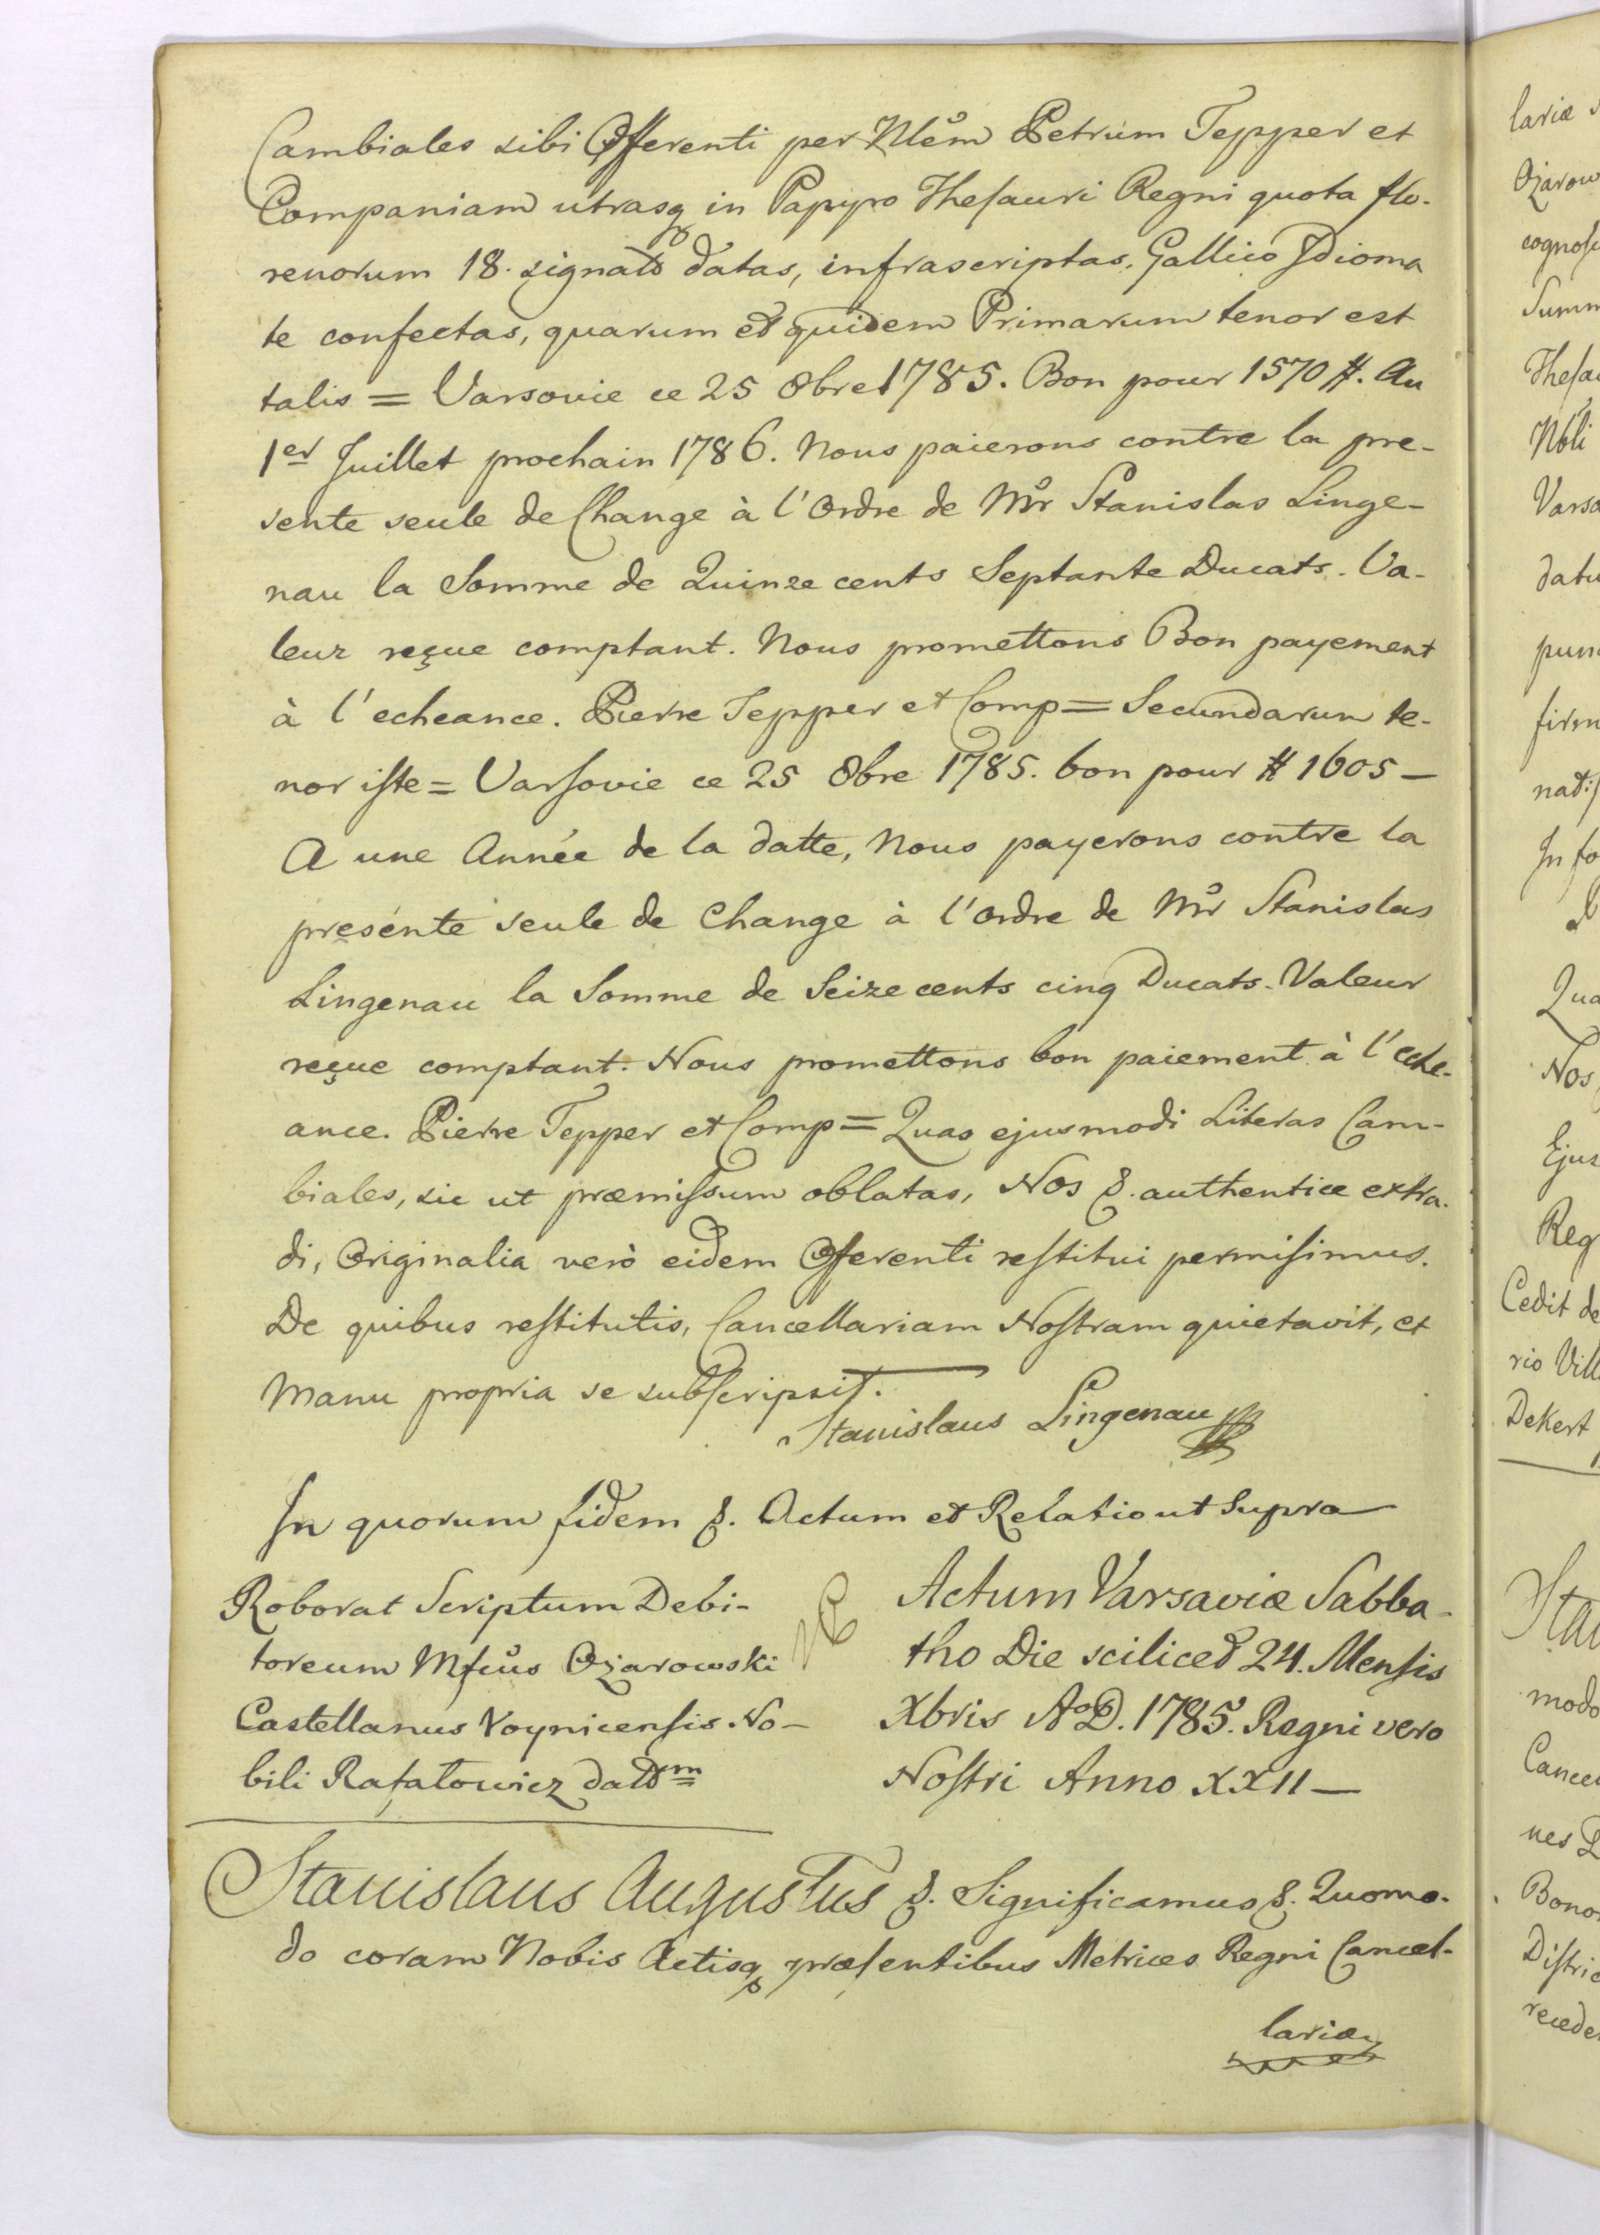 Cambiales sibi Offerenti per Nlem Petrum Tepper et
Companiam utrasq in Papyro Thesauri Regni quota flo-
renorum 18. signato datas, infrascriptas, Gallico Idioma
te confectas, quarum et quidem Primarum tenor est
talis = Varsovie ce 25 8bre 1785. Bon pour 1570 #. Au
1er Juillet prochain 1786. Nous paierons contre la pre-
sente seule de Change à l'Ordre de Mr Stanislas Linge-
nau la Somme de Quinze cents Septante Ducats. Va-
leur reçue comptant. Nous promettons Bon payement
à l'echeance. Pierre Tepper et Comp = Secundarum te-
nor iste = Varsovie ce 25 8bre 1785. bon pour # 1605 —
A une Année de la datte, Nous payerons contre la
presénte seule de Change à l'Ordre de Mr Stanislas
Lingenau la Somme de Seize cents cinq Ducats. Valeur
reçue comptant. Nous promettons bon paiement à l'eche-
ance. Pierre Tepper et Comp = Quas ejusmodi Literas Cam-
biales, sic ut præmissum oblatas, Nos &. authentice extra-
di, Originalia verò eidem Offerenti restitui permisimus.
De quibus restitutis, Cancellariam Nostram quietavit, et
Manu propria se subscripsit.
Stanislaus Lingenau
In quorum fidem &. Actum et Relatio ut Supra
Roborat Scriptum Debi-
toreum Mfcus Ożarowski
Castellanus Voynicensis No-
bili Rafałowicz datom
Actum Varsaviæ Sabba-
tho Die scilicet 24. Mensis
Xbris AoD. 1785. Regni vero
Nostri Anno XXII —
Stanislaus Augustus &. Significamus &. Quomo-
do coram Nobis Actisq præsentibus Metrices Regni Cancel-
lariæ
lariæ
Ożarow
cognos
Summ
Thesau
Nbli
Varso
datu
firm
In fo
Qua
Nos
Ejus
Reg
Cedit de
rio Vill
Dekert
Stan
modo
Cancel
nes
Bono
Distric
recede